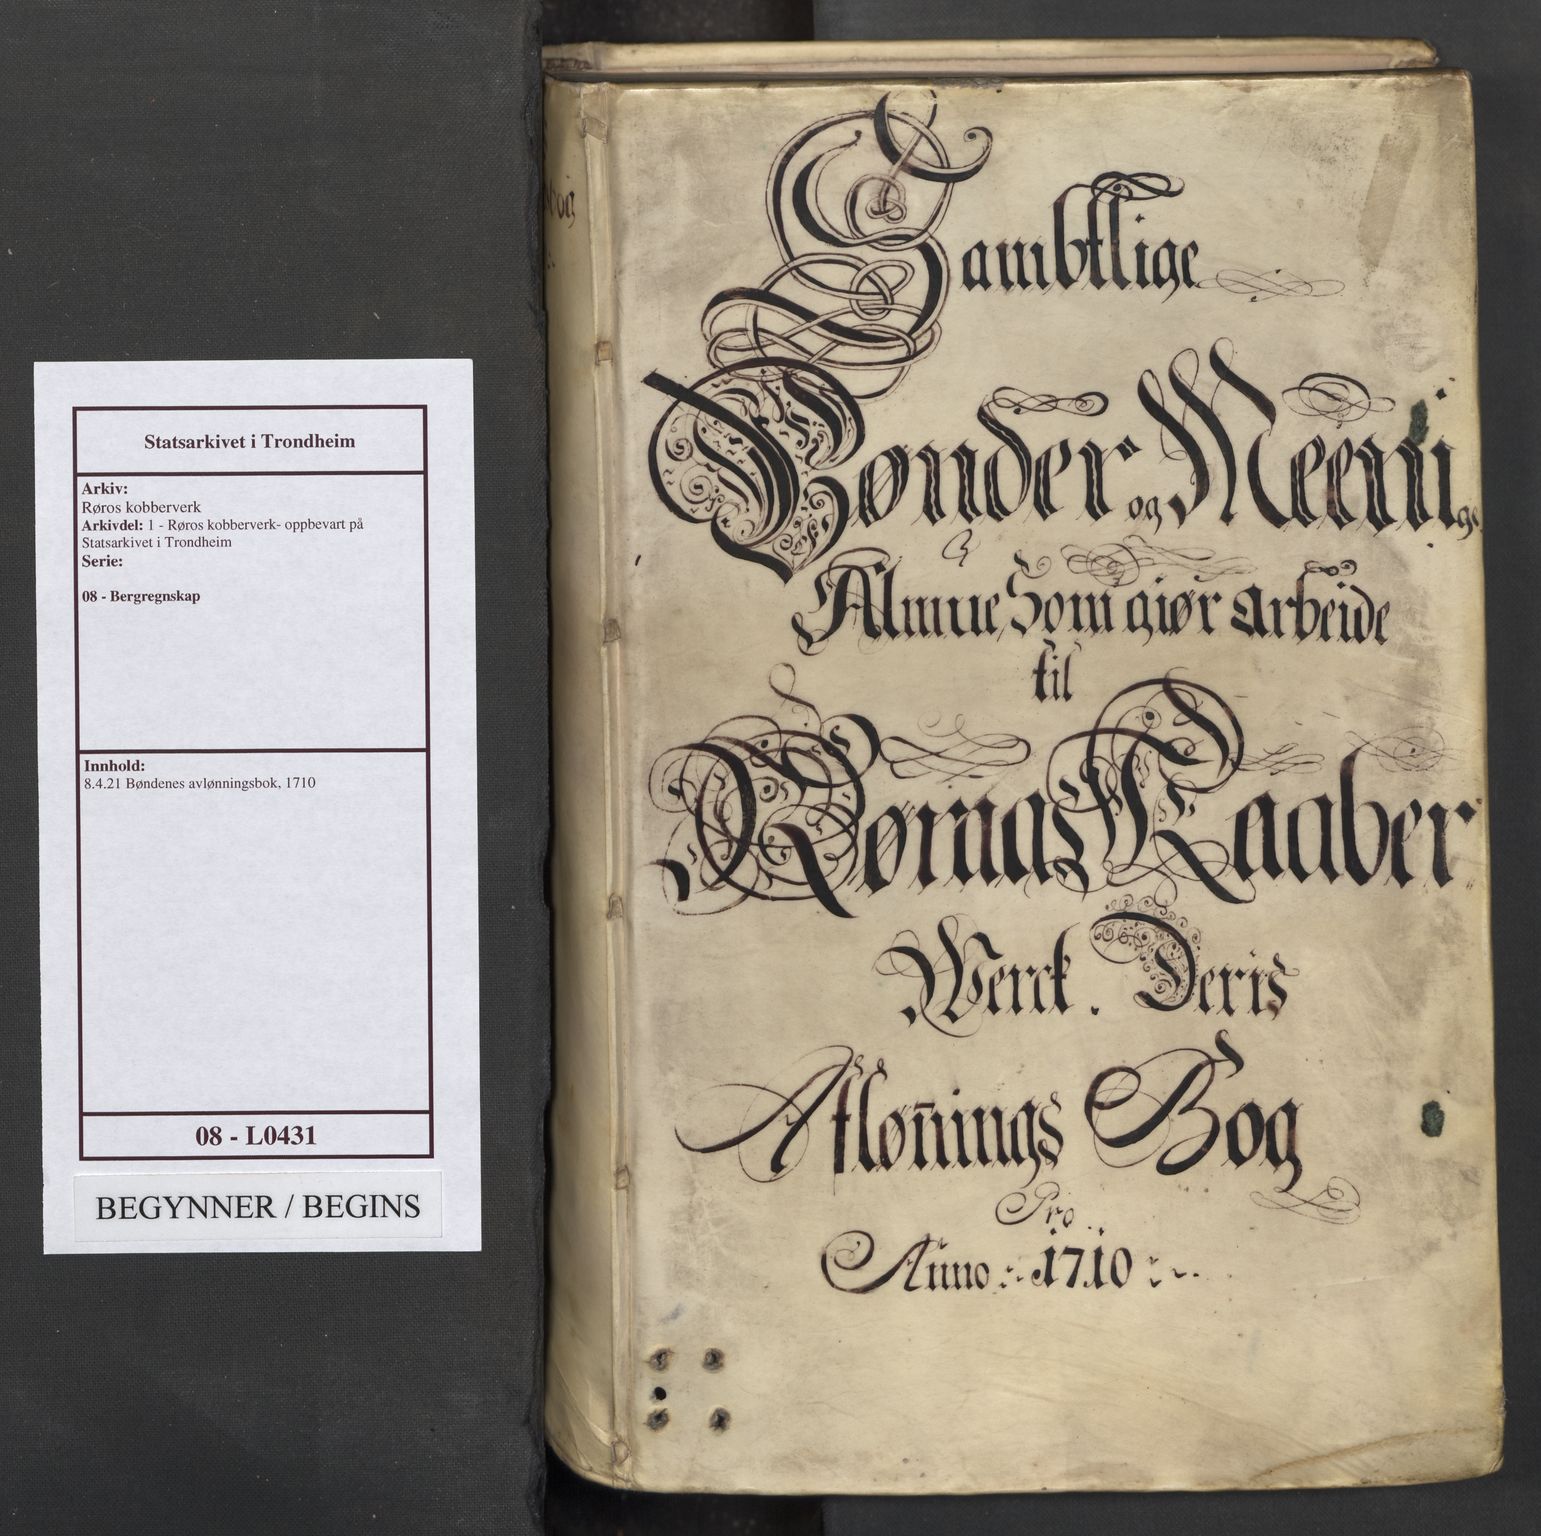 Statsarkivet i Trondheim
Arkiv:
Røros kobberverk
Arkivdel: 1 - Røros kobberverk- oppbevart på
Statsarkivet i Trondheim
Serie:
08 - Bergregnskap
Innhold:
8.4.21 Bøndenes avlønningsbok, 1710
08 - L0431
BEGYNNER / BEGINS
Sambtlige
Bønder og Meeni
ge
Almue Som giør arbeide
til
Røraas Kaaber
Werck. Deris
Aflønings Bog
Pro
Anno 1710